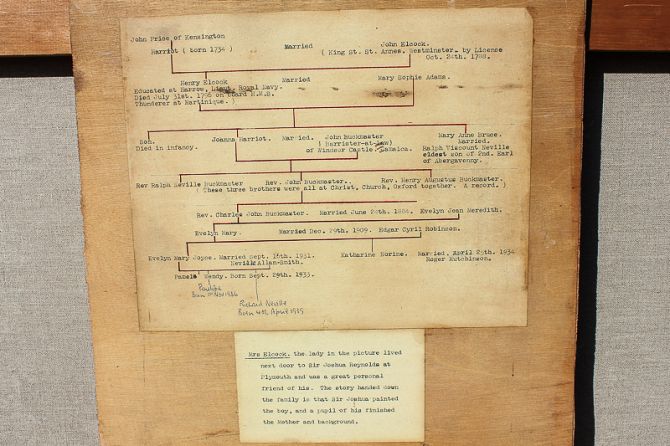 John Price of Kensington
Harriot ( born 1734 ) Married John Elcock.
( King St. St. Annes. Westminster. by License
Oct. 24th. 1788.
Henry Elcock Married Mary Sophie Adams.
Educated at Harrow, Lieut. Royal Navy.
Died July 31st. 1796 on board H.M.S.
Thunderer at Martinique. )
Son. Joanna Harriot. Married. John Buckmaster Mary Anne Bruce.
Died in infancy. ( Barrister-at-law) Married.
of Windsor Castle. Jamaica. Ralph Viscount Neville
eldest son of 2nd. Earl
of Abergavenny.
Rev Ralph Neville Buckmaster Rev. John Buckmaster. Rev. Henry Augustus Buckmaster.
( These three brothers were all at Christ, Church, Oxford together. A record. )
Rev. Charles John Buckmaster. Married June 24th. 1884. Evelyn Joan Meredith.
Evelyn Mary. Married Dec. 29th. 1909. Edgar Cyril Robinson.
Evelyn Mary Joyce. Married Sept. 16th. 1931. Katharine Norine. Married, April 25th. 1934
Neville Allan-Smith. Roger Hutchinson.
Pamela Wendy. Born Sept. 29th. 1933.
Born Nov 1936
Richard Neville
Born 4th, April 1945
Mrs Elcock. the lady in the picture lived
next door to Sir Joshua Reynolds at
Plymouth and was a great personal
friend of his. The story handed down
the family is that Sir Joshua painted
the boy, and a pupil of his finished
the Mother and background.